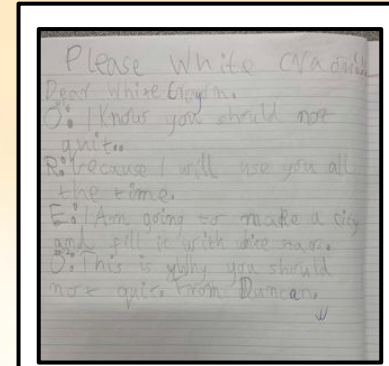 Please White
Dear White Crayon.
O: I Know you should not
quit.
R: because I will use you all
the time.
E: I Am going to make a city
and fill it with
O: This is why you should
not quit. From Duncan.